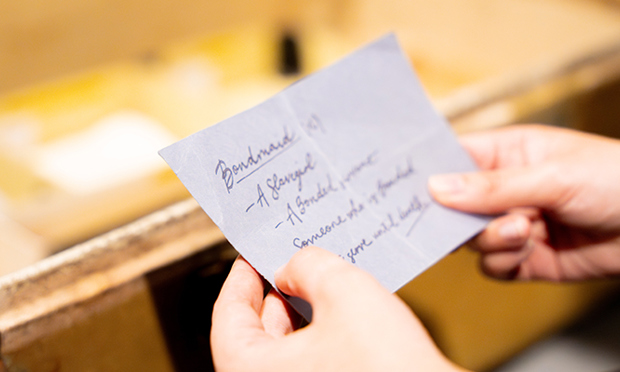 Bondmaid
- A Slavegirl
- A Bonded servant
Someone who is Bonded
serve until death